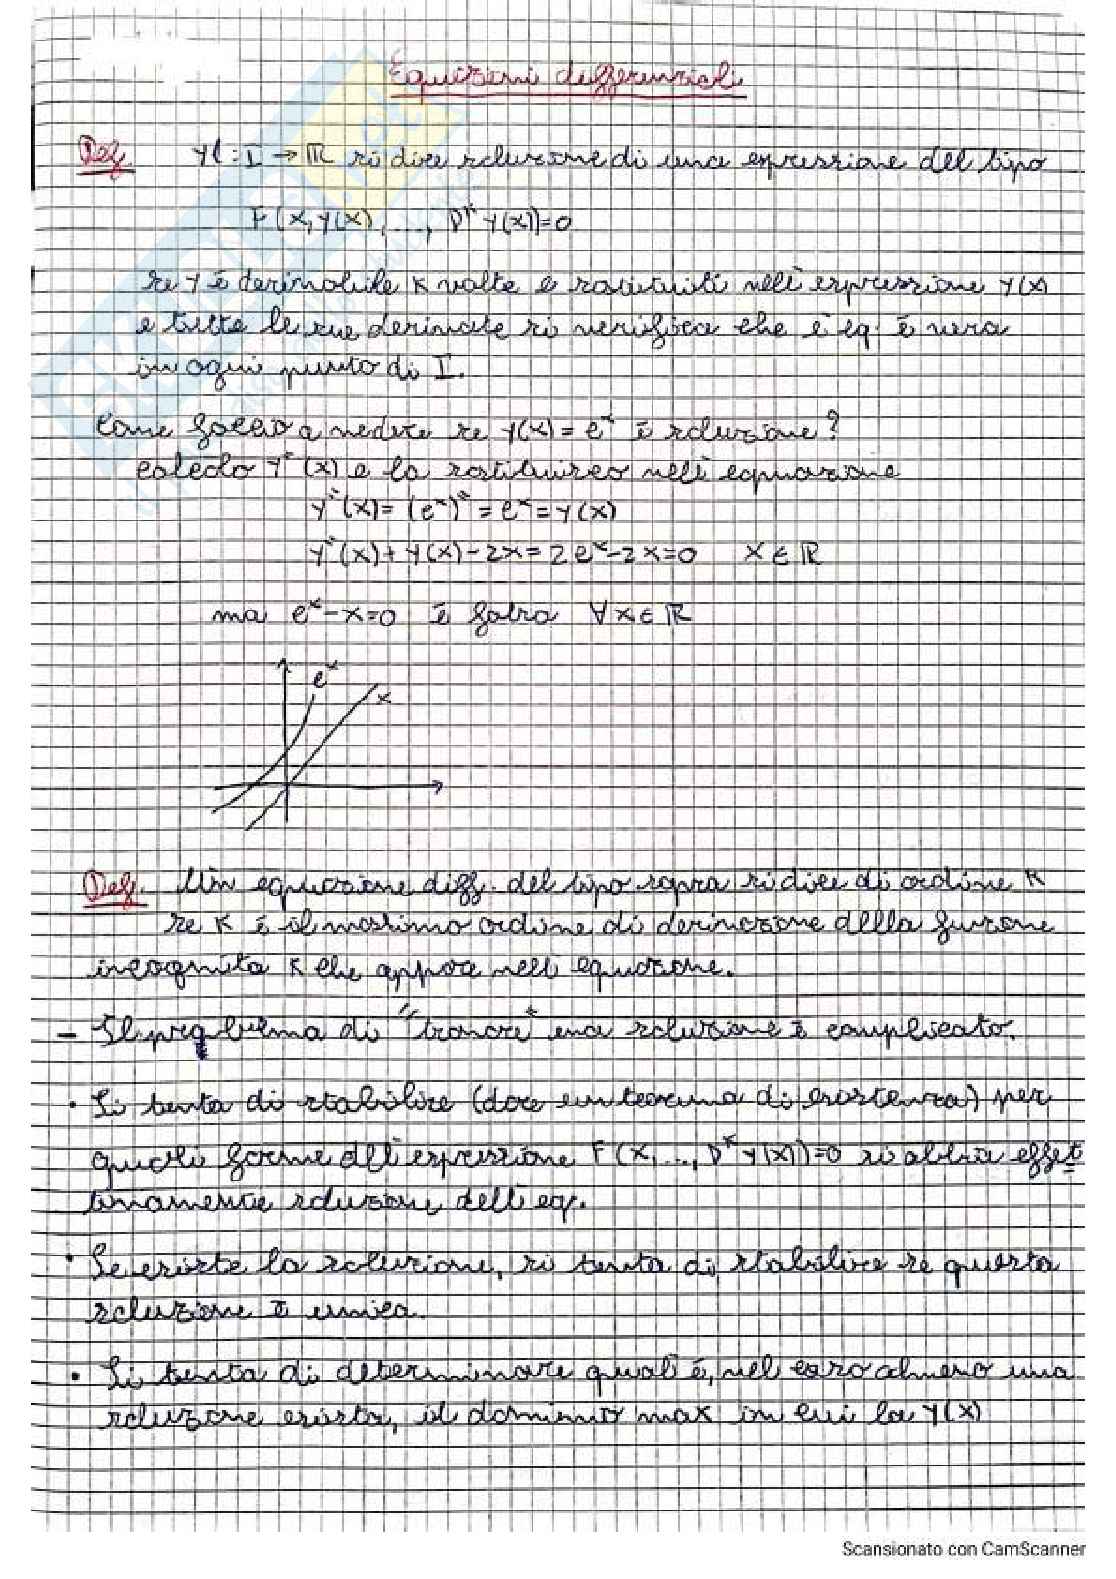 Equazioni differenziali
Def. y: I → ℝ si dice soluzione di una espressione del tipo
F(x, y(x), ..., Dᵏ y(x)) = 0
se y è derivabile k volte e sostituiti nell'espressione y(x)
e tutte le sue derivate si verifica che l'eq. è vera
in ogni punto di I.
Come faccio a vedere se y(x) = eˣ è soluzione?
Calcolo y'(x) e la sostituisco nell'equazione
y'(x) = (eˣ)' = eˣ = y(x)
y'(x) + y(x) - 2x = 2eˣ - 2x = 0 x ∈ ℝ
ma eˣ - x = 0 è falsa ∀x ∈ ℝ
eˣ
x
Def. Un equazione diff. del tipo sopra si dice di ordine k
se k è il massimo ordine di derivazione della funzione
incognita k che appare nell'equazione.
- Il problema di "trovare" una soluzione è complicato.
• Si tenta di stabilire (dare un teorema di esistenza) per
quali forme dell'espressione F(x, ..., Dᵏ y(x)) = 0 si abbia effet
tivamente soluzioni dell'eq.
• Se esiste la soluzione, si tenta di stabilire se questa
soluzione è unica.
• Si tenta di determinare qual è, nel caso almeno una
soluzione esista, il dominio max in cui la y(x)
Scansionato con CamScanner